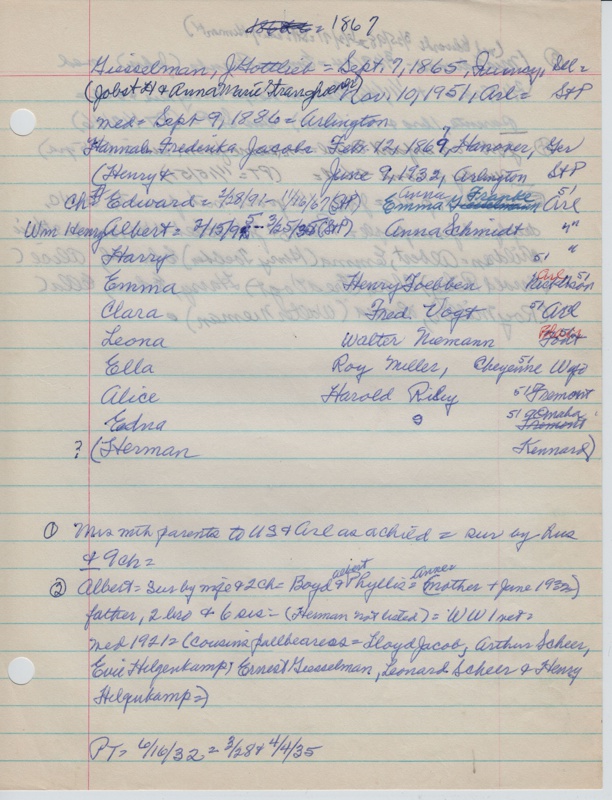 1867
Giesselman, J Gottlieb = Sept. 7, 1865, Quincy, Ill =
(Jobst H & Anna Marie Nov. 10, 1951, Arl = StP
med = Sept 9, 1886 = Arlington
Hannah Frederika Jacobs Feb. 12, 1869, Hanover, Ger
(Henry & June 9, 1932, Arlington StP
Ch = Edward = 2/28/91 - 11/16/67 (StP) Emma Anna Franke 51 Arl
Wm Henry Albert = 2/15/95 - 3/25/35 (StP) Anna Schmidt "
Harry 51 "
Emma Henry Toebben Arl 51
Clara Fred. Vogt 51 Arl
Leona Walter Niemann
Ella Roy Miller, Cheyenne 51 Wyo
Alice Harold Riley 51 Fremont
Edna 9 51 Omaha Fremont
? (Herman Kennard)
① Mrs with parents to US & Arl as a child = sur by hus
& 9 ch =
② Albert = sur by wife & 2 ch = Boyd Albert & Phyllis = (mother + June 1932)
father, 2 bro & 6 sis = (Herman not listed) = WW I vet =
med 1921 = (cousins pallbearers = Lloyd Jacob, Arthur Scheer,
Evie Hilgenkamp, Ernest Giesselman, Leonard Scheer & Henry
Hilgenkamp =)
PT = 6/16/32 = 3/28 & 4/4/35